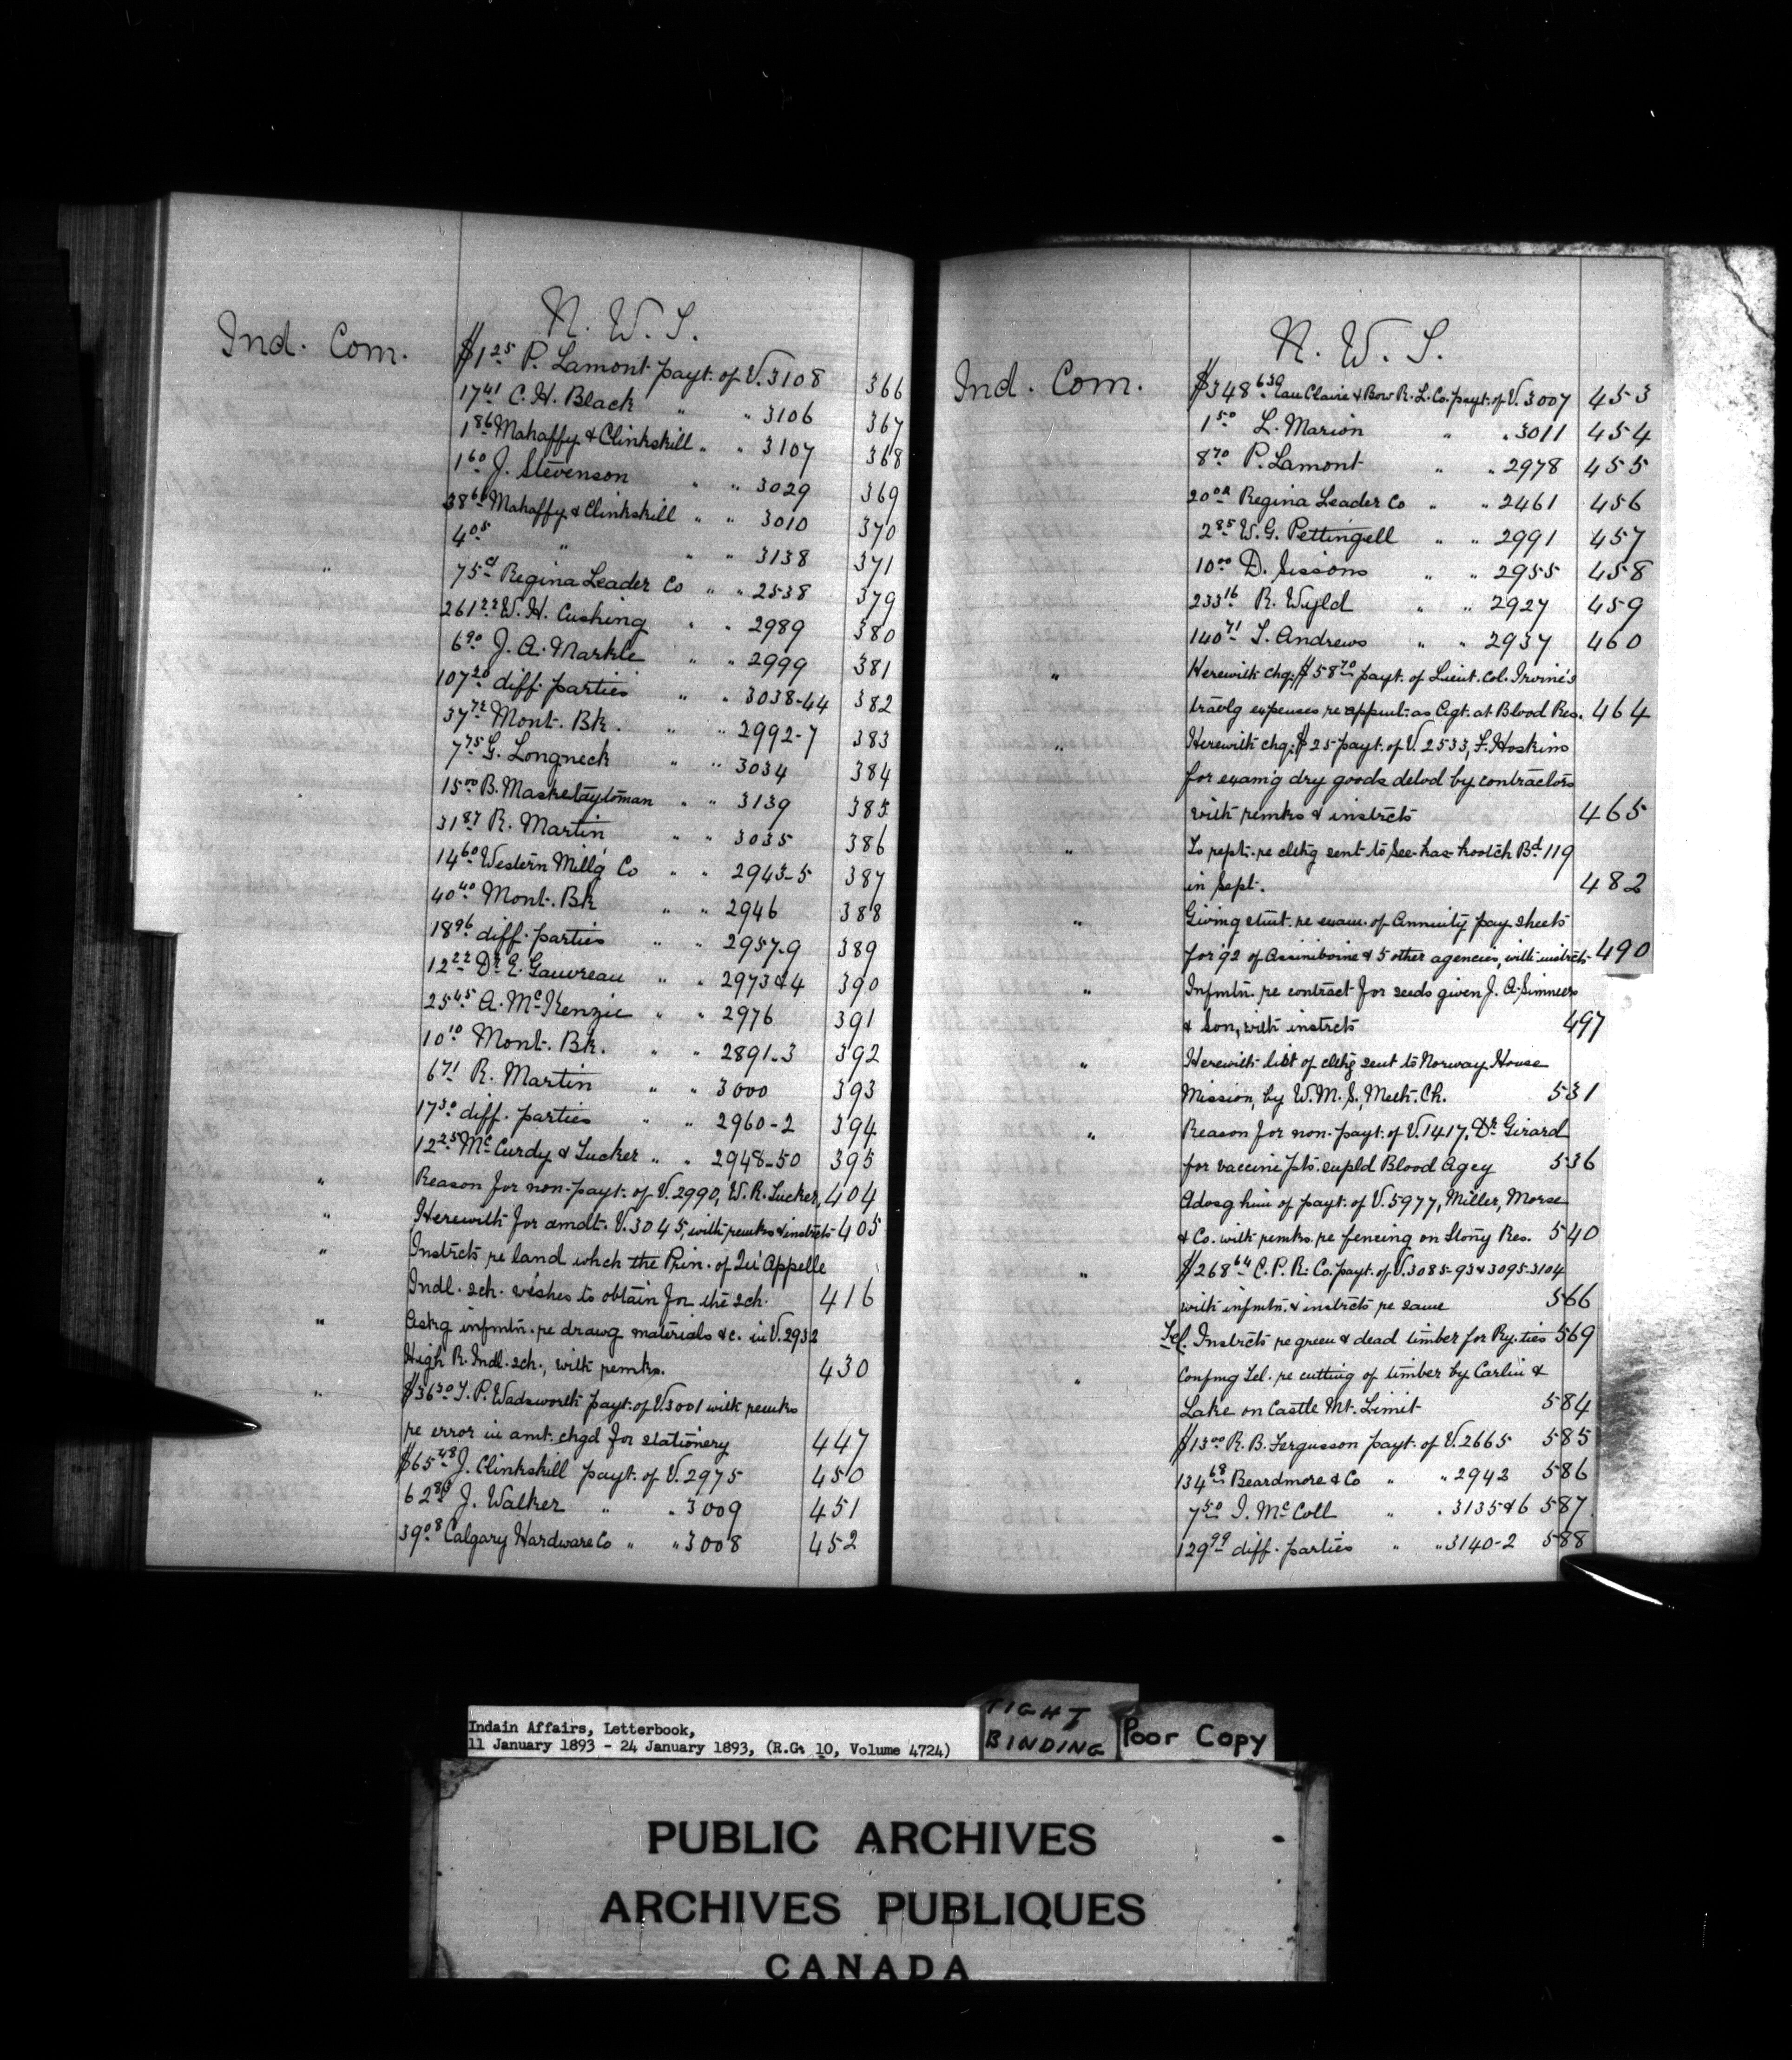 N. W. T.
Ind. Com. $1 25 P. Lamont payt. of V. 3108 366
17 41 C. H. Black " " 3106 367
1 86 Mahaffy & Clinkskill " " 3107 368
1 60 J. Stevenson " " 3029 369
38 66 Mahaffy & Clinkskill " " 3010 370
4 05 " " " 3138 371
" 75 cl Regina Leader Co " " 2538 379
261 22 W. H. Cushing " " 2989 380
6 90 J. A. Markle " " 2999 381
107 20 diff. parties " " 3038-44 382
37 72 Mont. Bk. " " 2992-7 383
7 75 G. Longneck " " 3034 384
15 00 B. Masketaytoman " " 3139 385
31 87 R. Martin " " 3035 386
14 60 Western Mill'g Co " " 2943-5 387
40 40 Mont. Bk " " 2946 388
18 96 diff. parties " " 2957-9 389
12 22 Dr E. Gauvreau " " 2973&4 390
25 45 A. McKenzie " " 2976 391
10 10 Mont. Bk. " " 2891-3 392
6 71 R. Martin " " 3000 393
17 30 diff. parties " " 2960-2 394
12 25 McCurdy & Tucker " " 2948-50 395
" Reason for non-payt. of V. 2990, W. R. Tucker, 404
" Herewith for amdt. V. 3045, with remks & instrcts 405
" Instrcts re land which the Prin. of Qu'Appelle
Indl. sch. wishes to obtain for the sch. 416
" Askg infmtn. re drawg materials &c. in V. 2932
High R. Indl. sch., with remks. 430
" $36 30 T. P. Wadsworth payt. of V. 3001 with remks
re error in amt. chgd for stationery 447
$65 48 J. Clinkskill payt. of V. 2975 450
62 80 J. Walker " " 3009 451
39 08 Calgary Hardware Co " " 3008 452
N. W. T.
Ind. Com. $348 639 Eau Claire & Bow R. L. Co. payt. of V. 3007 453
1 50 L. Marion " " 3011 454
8 70 P. Lamont " " 2978 455
20 02 Regina Leader Co " " 2461 456
2 85 W. G. Pettingell " " 2991 457
10 00 D. Sissons " " 2955 458
233 16 R. Wyld " " 2927 459
140 71 T. Andrews " " 2937 460
" Herewith chq. $58 70 payt. of Lieut. Col. Irvine's
travlg expenses re appmt. as Agt. at Blood Res. 464
" Herewith chq. $25 payt. of V. 2533, F. Hoskins
for examg dry goods delvd by contractors
with remks & instrcts 465
" To rept. re clthg sent to See-kas-kootch Bd 119
in Sept. 482
" Giving stmt. re exam. of Annuity pay sheets
for 92 of Assiniboine & 5 other agencies, with instrcts 490
" Infmtn. re contract for seeds given J. A. Simmers
& Son, with instrcts 497
" Herewith list of clthg sent to Norway House
Mission, by W. M. S., Meth. Ch. 531
" Reason for non-payt. of V. 1417, Dr Girard
for vaccine pts. supld Blood Agcy 536
Advsg him of payt. of V. 5977, Miller, Morse
& Co. with remks. re fencing on Stony Res. 540
" $268 64 C. P. R. Co. payt. of V. 3085-93 & 3095-3104
with infmtn. & instrcts re same 566
Tel. Instrcts re green & dead timber for Ry. ties 569
" Confmg Tel. re cutting of timber by Carlin &
Lake on Castle Mt. Limit 584
$13 00 R. B. Fergusson payt. of V. 2665 585
134 68 Beardmore & Co " " 2942 586
7 50 J. McColl " " 3135&6 587
129 99 diff. parties " " 3140-2 588
Indain Affairs, Letterbook,
11 January 1893 - 24 January 1893, (R.G. 10, Volume 4724)
TIGHT
BINDING
Poor Copy
PUBLIC ARCHIVES
ARCHIVES PUBLIQUES
CANADA